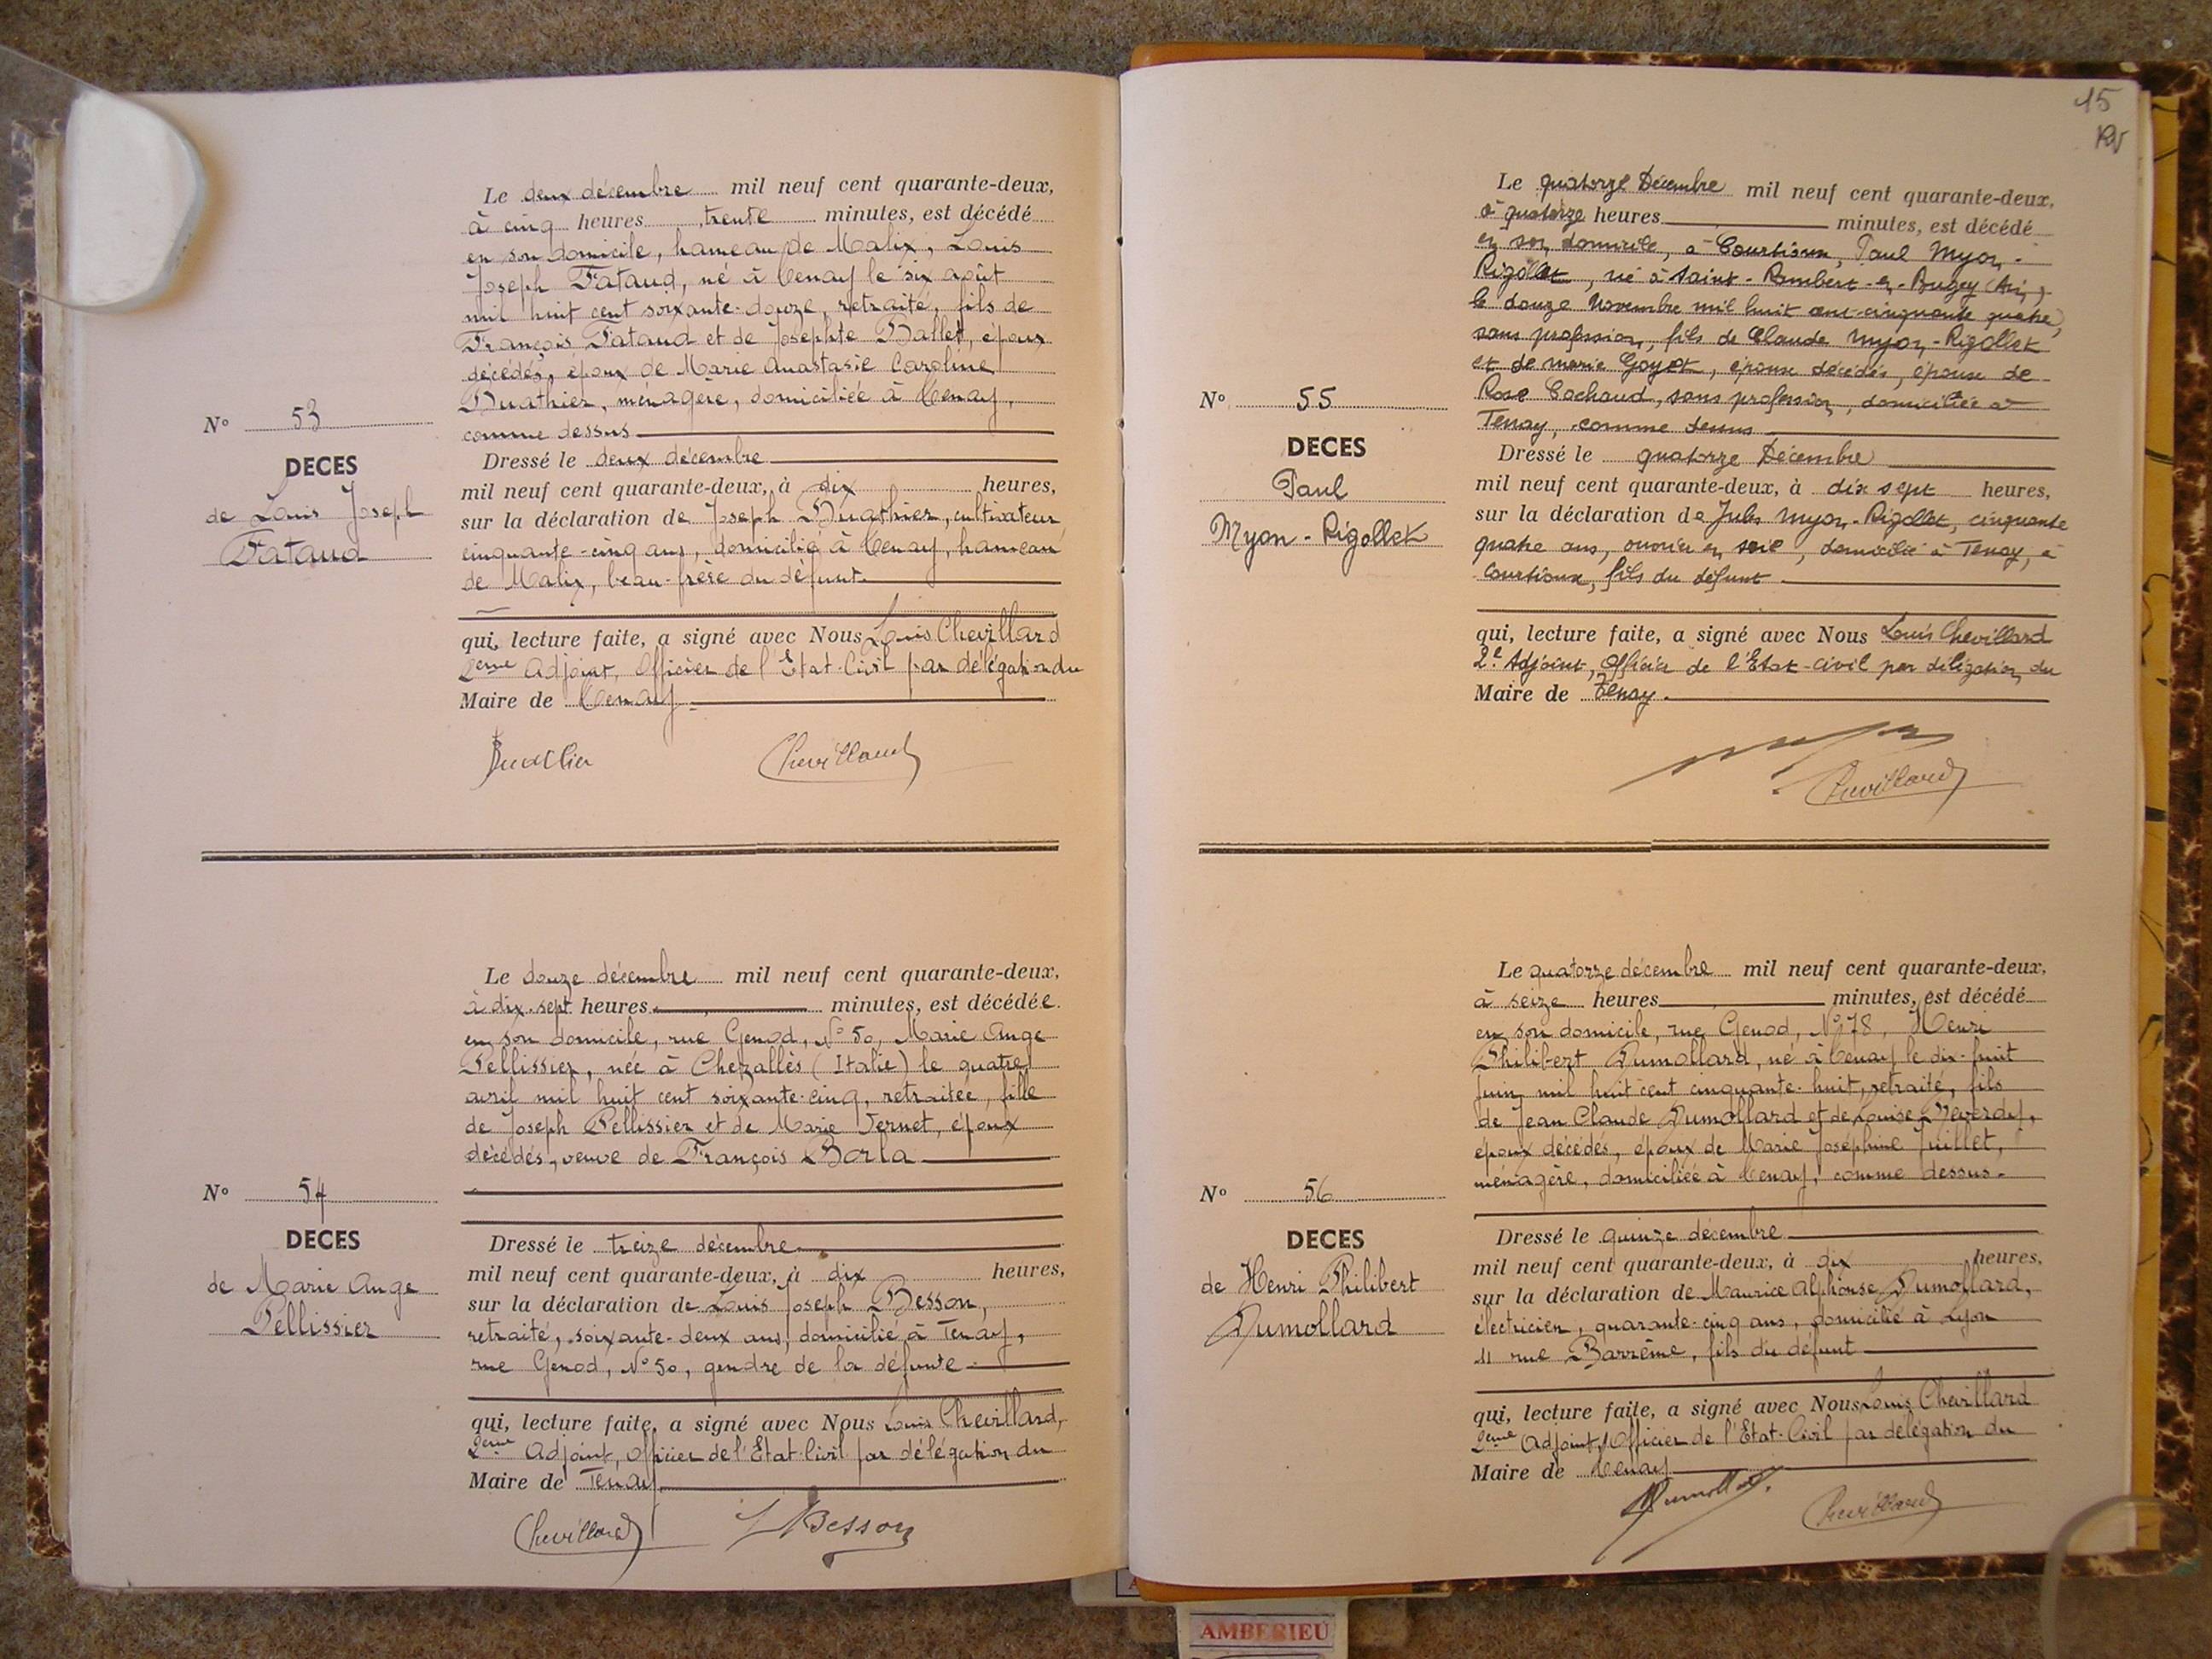 Le deux décembre mil neuf cent quarante-deux,
à cinq heures trente minutes, est décédé
en son domicile, hameau de Malix, Louis
Joseph Tataud, né à Tenay le six août
mil huit cent soixante-douze, retraité, fils de
François Tataud et de Josephte Ballet, époux
décédés, époux de Marie Anastasie Caroline
Buathier, ménagère, domiciliée à Tenay,
comme dessus
N° 53
DECES
de Louis Joseph
Tataud
Dressé le deux décembre
mil neuf cent quarante-deux, à dix heures,
sur la déclaration de Joseph Buathier, cultivateur,
cinquante-cinq ans, domicilié à Tenay, hameau
de Malix, beau-frère du défunt.
qui, lecture faite, a signé avec Nous Louis Chevillard
2ème Adjoint, Officier de l'Etat-Civil par délégation du
Maire de Tenay
Buathier Chevillard
Le douze décembre mil neuf cent quarante-deux,
à dix-sept heures minutes, est décédée
en son domicile, rue Genod, N° 50, Marie Ange
Pellissier, née à Chezallès (Italie) le quatre
avril mil huit cent soixante-cinq, retraitée, fille
de Joseph Pellissier et de Marie Jernet, époux
décédés, veuve de François Borla
N° 54
DECES
de Marie Ange
Pellissier
Dressé le treize décembre
mil neuf cent quarante-deux, à dix heures,
sur la déclaration de Louis Joseph Besson,
retraité, soixante-deux ans, domicilié à Tenay,
rue Genod, N° 50, gendre de la défunte
qui, lecture faite, a signé avec Nous Louis Chevillard,
2ème Adjoint, Officier de l'Etat-Civil par délégation du
Maire de Tenay
Chevillard Besson
15
Le quatorze Décembre mil neuf cent quarante-deux,
à quatorze heures minutes, est décédé
en son domicile, à Courtioux, Paul Myon-
Rigollet, né à Saint-Rambert-en-Bugey (Ain)
le douze Novembre mil huit cent cinquante quatre,
sans profession, fils de Claude Myon-Rigollet
et de Marie Goyet, époux décédés, époux de
Rose Cochaud, sans profession, domiciliée à
Tenay, comme dessus
N° 55
DECES
Paul
Myon-Rigollet
Dressé le quatorze Décembre
mil neuf cent quarante-deux, à dix sept heures,
sur la déclaration de Jules Myon-Rigollet, cinquante
quatre ans, ouvrier en soie, domicilié à Tenay, à
Courtioux, fils du défunt
qui, lecture faite, a signé avec Nous Louis Chevillard
2e Adjoint, Officier de l'Etat-civil par délégation du
Maire de Tenay.
Chevillard
Le quatorze décembre mil neuf cent quarante-deux,
à seize heures minutes, est décédé
en son domicile, rue Genod, N° 78, Henri
Philibert Dumollard, né à Tenay le dix-huit
juin mil huit cent cinquante-huit, retraité, fils
de Jean Claude Dumollard et de Louise Neverdy,
époux décédés, époux de Marie Joséphine Juillet,
ménagère, domiciliée à Tenay, comme dessus.
N° 56
DECES
de Henri Philibert
Dumollard
Dressé le quinze décembre
mil neuf cent quarante-deux, à dix heures,
sur la déclaration de Maurice Alphonse Dumollard,
électricien, quarante-cinq ans, domicilié à Lyon
11 rue Barrême, fils du défunt
qui, lecture faite, a signé avec Nous Louis Chevillard
2ème Adjoint, Officier de l'Etat-Civil par délégation du
Maire de Tenay
Dumollard Chevillard
AMBERIEU